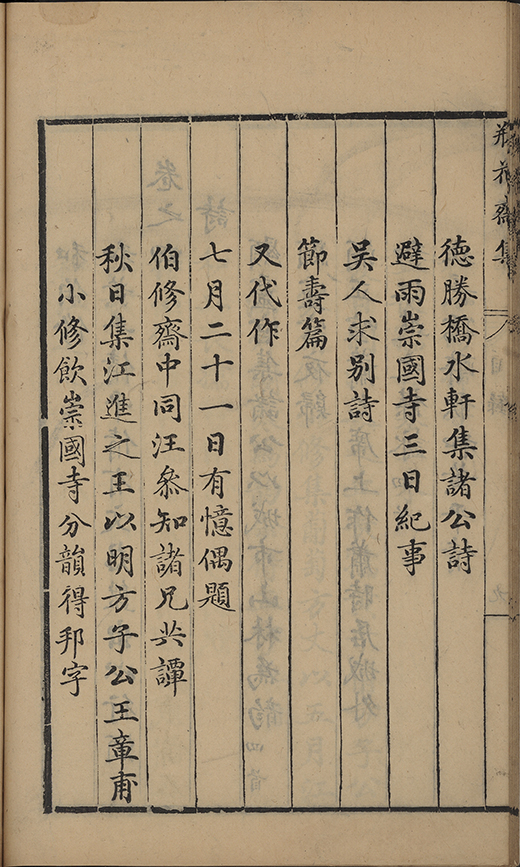 瓶花齋集
目錄
九
德勝橋水軒集諸公詩
避雨崇國寺三日紀事
吳人求別詩
節壽篇
又代作
七月二十一日有憶偶題
伯修齋中同汪叅知諸兄共譚
秋日集江進之王以明方子公王章甫
小修飲崇國寺分韻得邦字